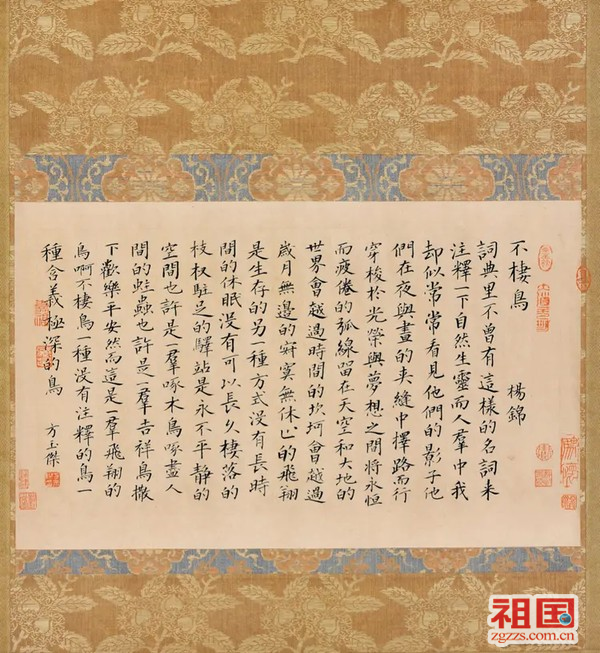 不棲鳥 楊錦
詞典里不曾有這樣的名詞来
注釋一下自然生靈而人羣中我
却似常常看見他們的影子他
們在夜與晝的夹縫中擇路而行
穿梭於光榮與夢想之間將永恒
而疲倦的弧線留在天空和大地的
世界會越過時間的坎坷會越過
歲月無邊的寂寞無休止的飛翔
是生存的另一種方式没有長時
間的休眠没有可以長久棲落的
枝杈駐足的驛站是永不平靜的
空間也許是一羣啄木鳥啄盡人
間的蛀蟲也許是一羣吉祥鳥撒
下歡樂平安然而這是一羣飛翔的
鳥啊不棲鳥一種没有注釋的鳥一
種含義極深的鳥 方玉傑
祖国
zgzzs.com.cn